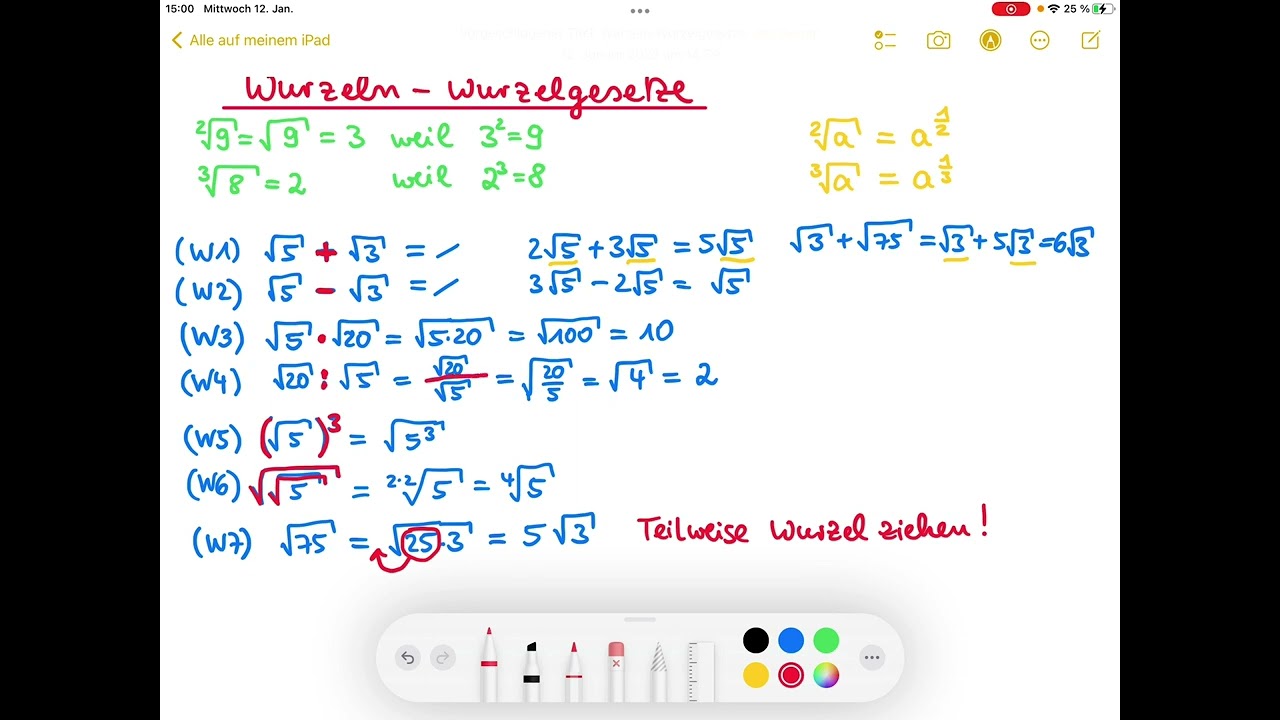 15:00 Mittwoch 12. Jan. 25 %
Alle auf meinem iPad
Wurzeln – Wurzelgesetze
²√9 = √9 = 3 weil 3² = 9 ²√a = a^(1/2)
³√8 = 2 weil 2³ = 8 ³√a = a^(1/3)
(W1) √5 + √3 = / 2√5 + 3√5 = 5√5 √3 + √75 = √3 + 5√3 = 6√3
(W2) √5 – √3 = / 3√5 – 2√5 = √5
(W3) √5 · √20 = √(5·20) = √100 = 10
(W4) √20 : √5 = √20/√5 = √(20/5) = √4 = 2
(W5) (√5)³ = √(5³)
(W6) √(√5) = ²·²√5 = ⁴√5
(W7) √75 = √(25·3) = 5√3 Teilweise Wurzel ziehen!